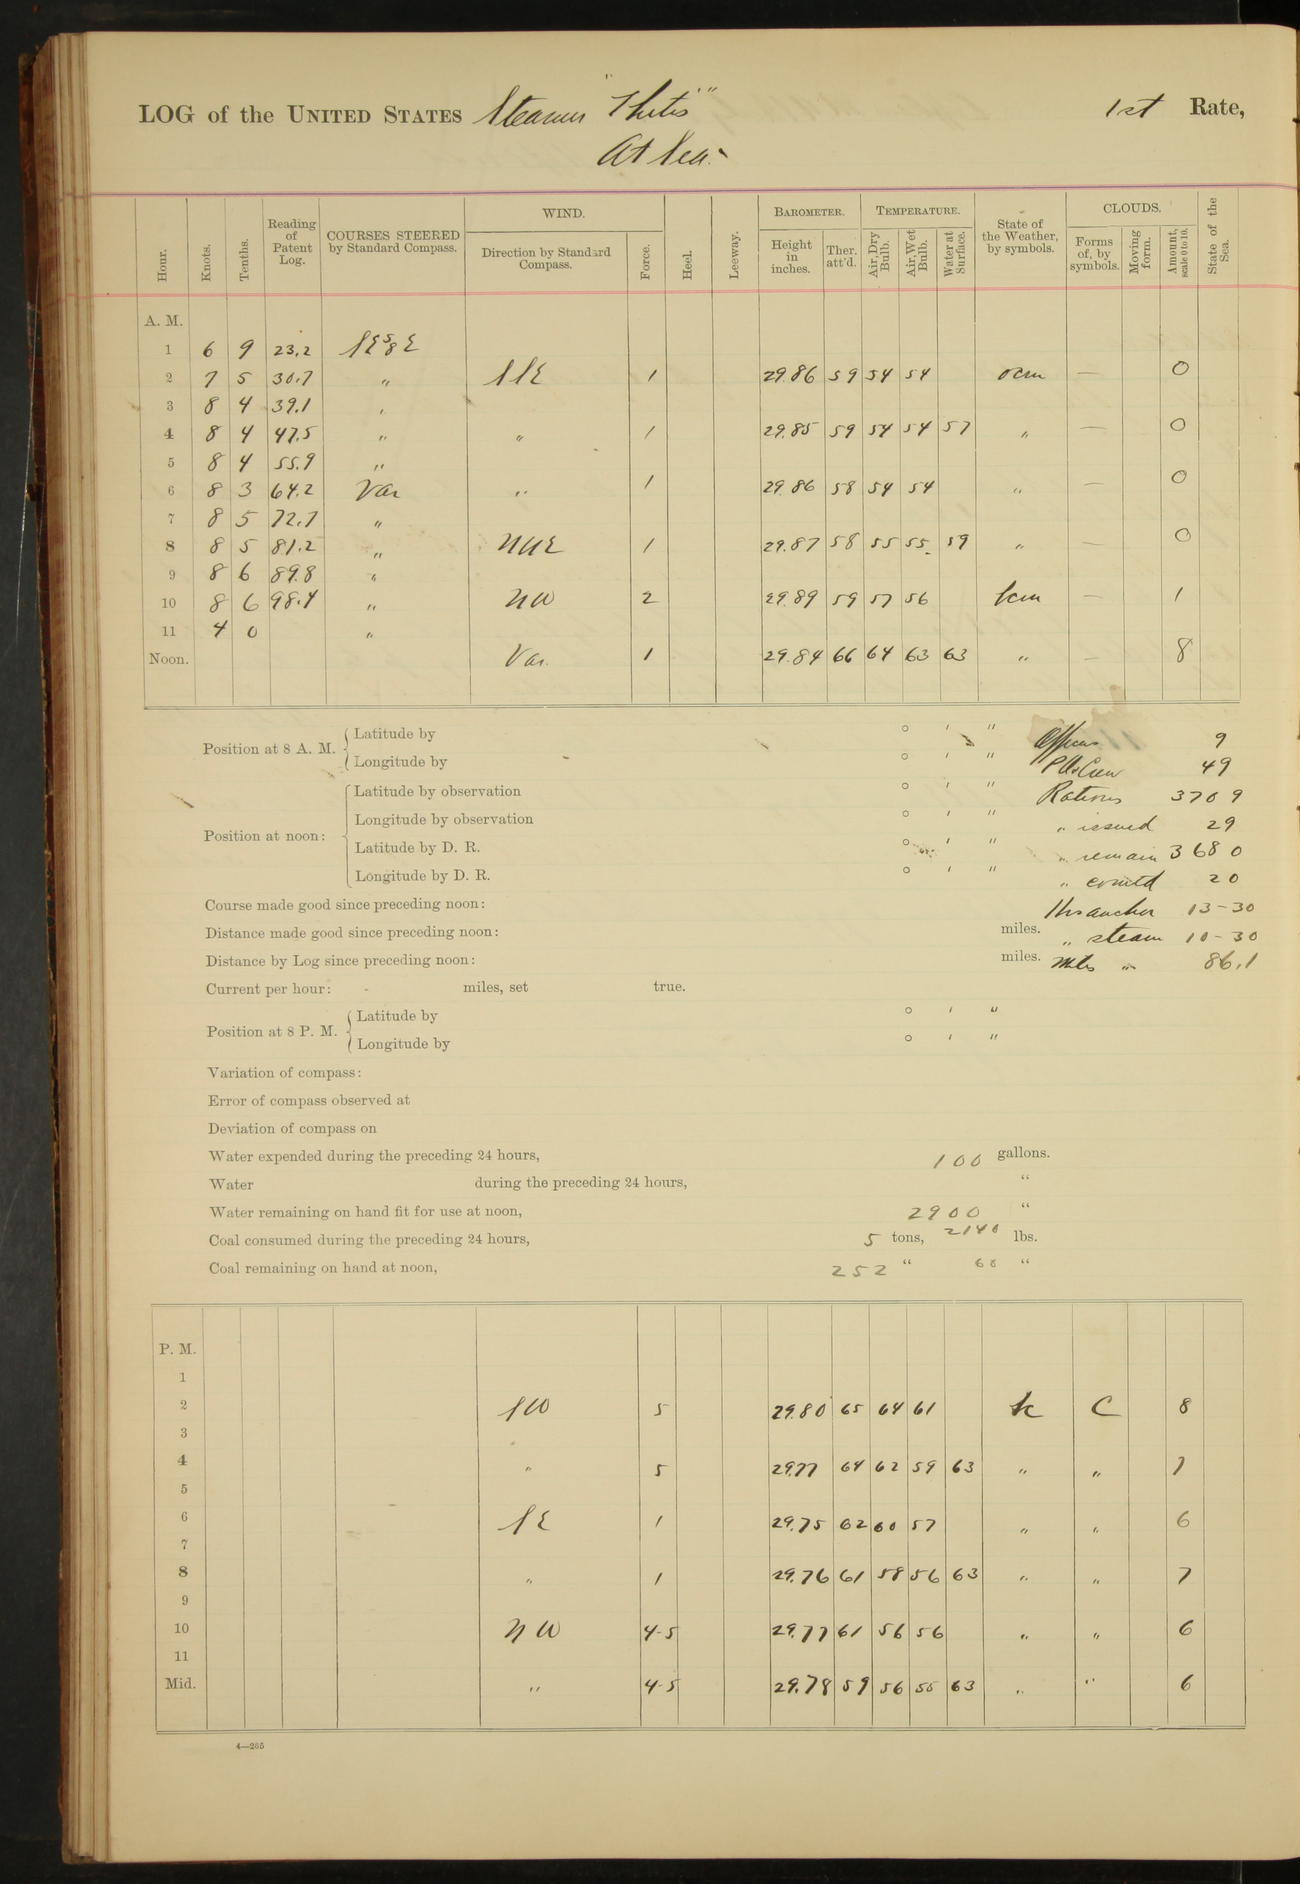 LOG of the UNITED STATES Steamer "Thetis" 1st Rate,
At Sea
Hour. Knots. Tenths. Reading of Patent Log. COURSES STEERED by Standard Compass. WIND. Direction by Standard Compass. Force. Heel. Leeway. BAROMETER. Height in inches. Ther. att'd. TEMPERATURE. Air, Dry Bulb. Air, Wet Bulb. Water at Surface. State of the Weather, by symbols. CLOUDS. Forms of, by symbols. Moving form. Amount, scale 0 to 10. State of the Sea.
A. M.
1 6 9 23.2 SE 5/8 E
2 7 5 30.7 " SSE 1 29.86 59 54 54 ocm — 0
3 8 4 39.1 "
4 8 4 47.5 " " 1 29.85 59 54 54 57 " — 0
5 8 4 55.9 "
6 8 3 64.2 Var " 1 29.86 58 54 54 " — 0
7 8 5 72.7 "
8 8 5 81.2 " NNE 1 29.87 58 55 55 59 " — 0
9 8 6 89.8 "
10 8 6 98.4 " NW 2 29.89 59 57 56 bcm — 1
11 4 0 "
Noon. Var. 1 29.84 66 64 63 63 " — 8
Position at 8 A. M. Latitude by ° ′ ″ Officers 9
Longitude by ° ′ ″ P.O. & Crew 49
Position at noon: Latitude by observation ° ′ ″ Rations 3709
Longitude by observation ° ′ ″ " issued 29
Latitude by D. R. ° ′ ″ " remain 3680
Longitude by D. R. ° ′ ″ " comtd 20
Course made good since preceding noon: Hrs anchor 13-30
Distance made good since preceding noon: miles. " steam 10-30
Distance by Log since preceding noon: miles. Miles " 86.1
Current per hour: miles, set true.
Position at 8 P. M. Latitude by ° ′ ″
Longitude by ° ′ ″
Variation of compass:
Error of compass observed at
Deviation of compass on
Water expended during the preceding 24 hours, 100 gallons.
Water during the preceding 24 hours, "
Water remaining on hand fit for use at noon, 2900 "
Coal consumed during the preceding 24 hours, 5 tons, 2140 lbs.
Coal remaining on hand at noon, 252 " 60 "
P. M.
1
2 SW 5 29.80 65 64 61 bc C 8
3
4 " 5 29.77 64 62 59 63 " " 7
5
6 SE 1 29.75 62 60 57 " " 6
7
8 " 1 29.76 61 58 56 63 " " 7
9
10 NW 4-5 29.77 61 56 56 " " 6
11
Mid. " 4-5 29.78 59 56 55 63 " " 6
4—265